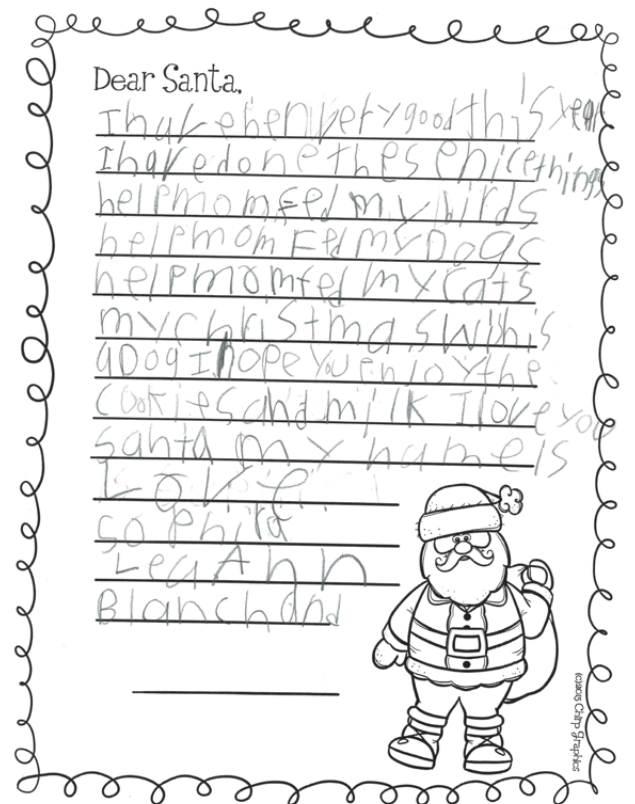 Dear Santa,
I have ben very good this year
I have done these nice things
help mom fed my birds
help mom Fed my Dogs
help mom fed my cats
my christmas wish is
a Dog I hope you enjoy the
cookies and milk I love you
santa my name is
Love
sophira
LeaAnn
Blanchard
(c)2015 Chirp Graphics